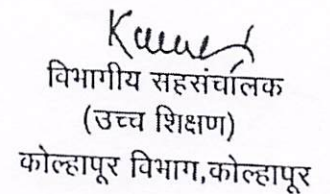 विभागीय सहसंचालक
(उच्च शिक्षण)
कोल्हापूर विभाग,कोल्हापूर